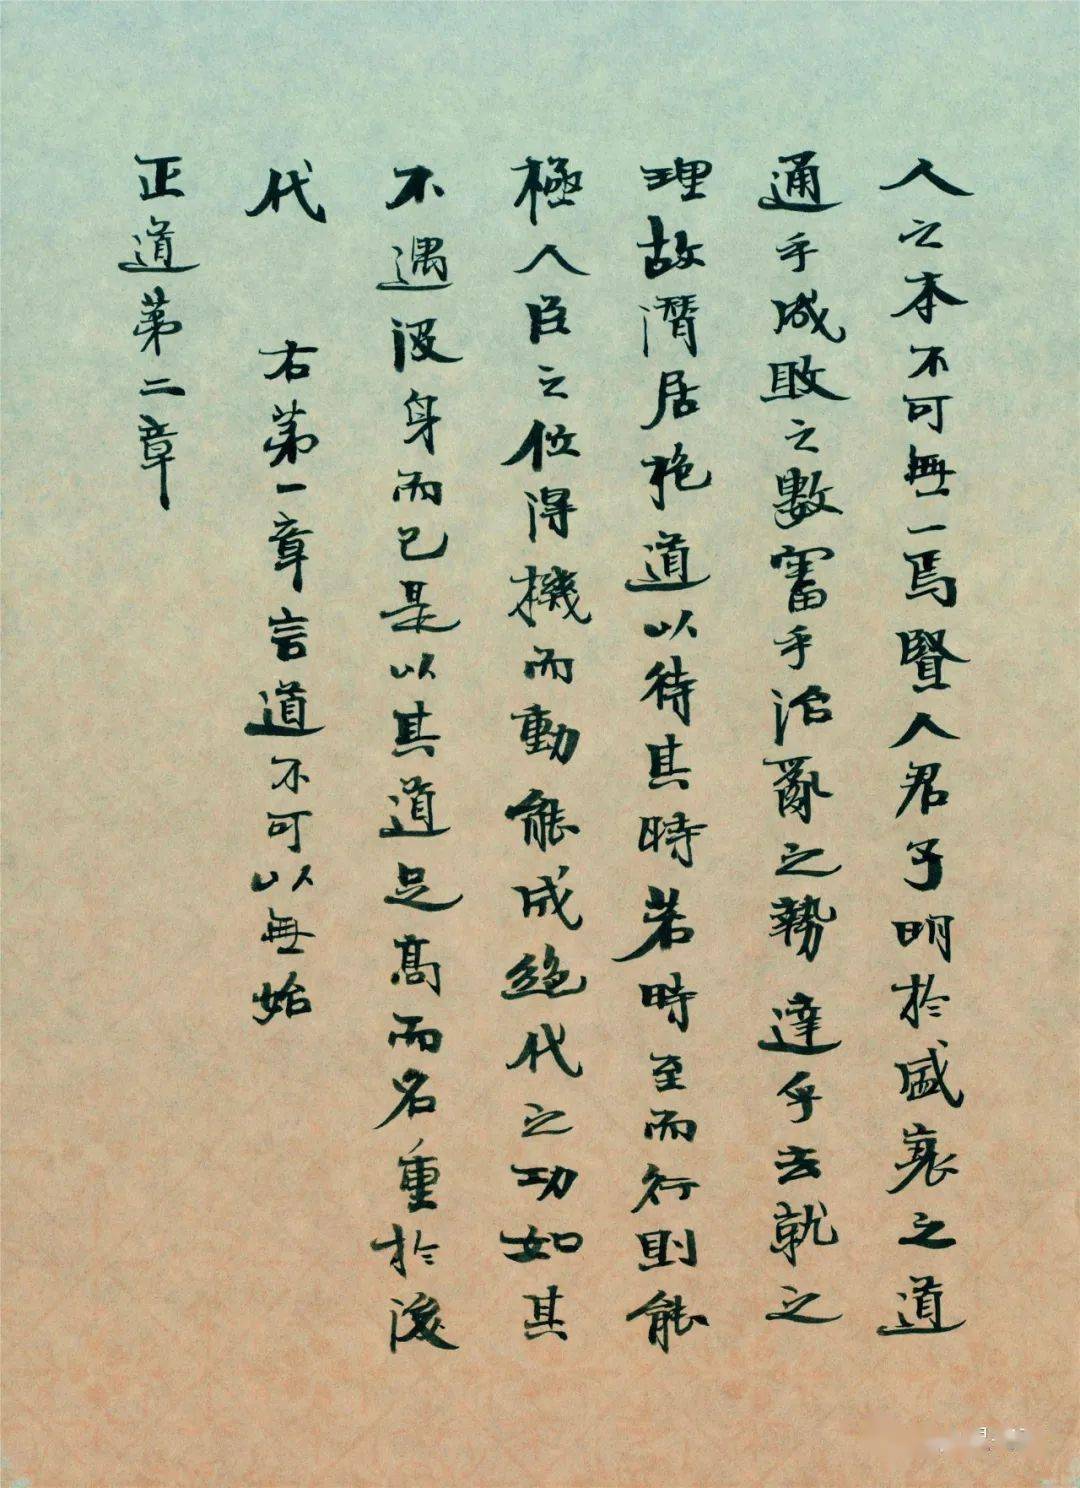 人之本不可無一焉賢人君子明於盛衰之道
通乎成敗之數審乎治亂之勢達乎去就之
理故潛居抱道以待其時若時至而行則能
極人臣之位得機而動能成絕代之功如其
不遇沒身而已是以其道足高而名重於後
代 右第一章言道不可以無始
正道第二章